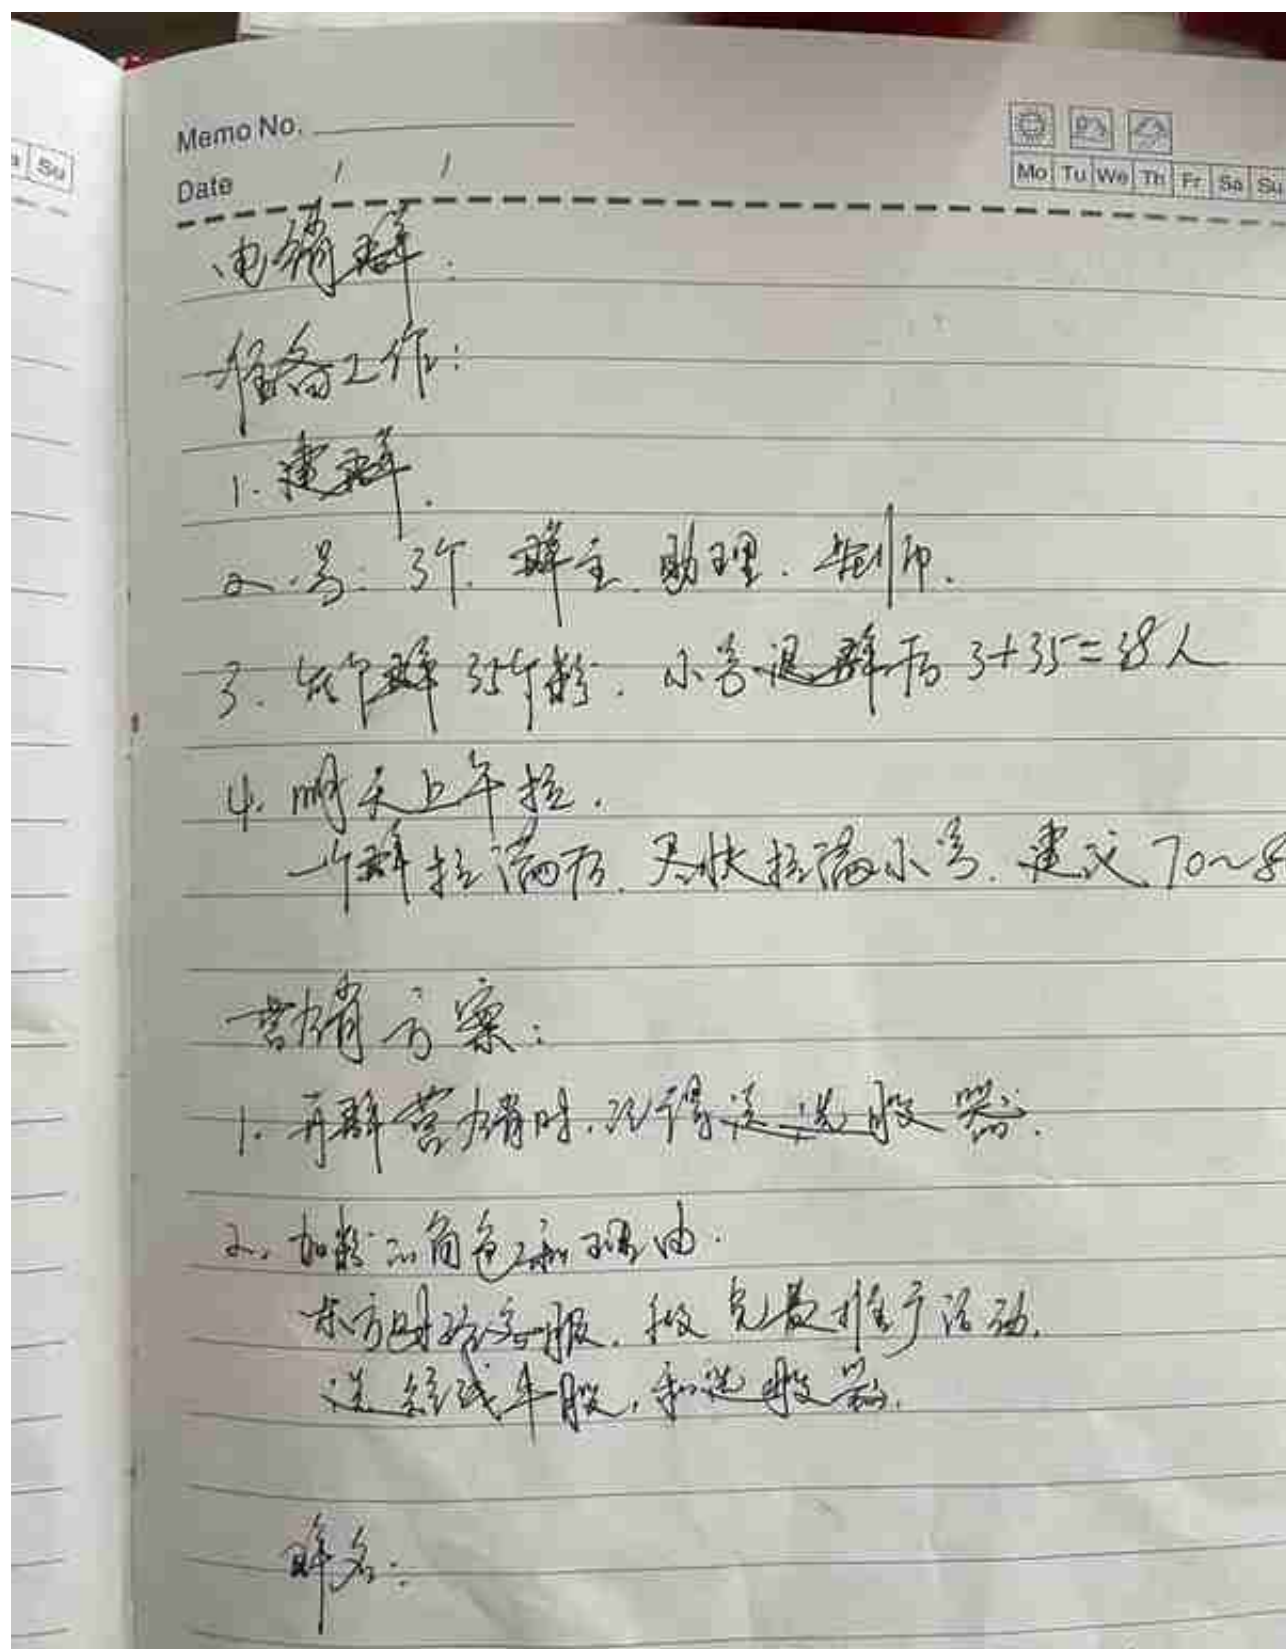 Su
Memo No.
Date / /
Mo Tu We Th Fr Sa Su
电销群:
准备工作:
1. 建群.
2. 号: 3个. 群主. 助理. 老师.
3. 每个群 35个粉. 小号退群后 3+35=38人
4. 明天上午拉.
一个群拉满后. 尽快拉满小号. 建议 70~8
营销方案:
1. 再群营销时. 记得送选股器.
2. 加粉的角色和理由.
东方财富客服. 推广活动.
送短线牛股, 和选股器.
群名: